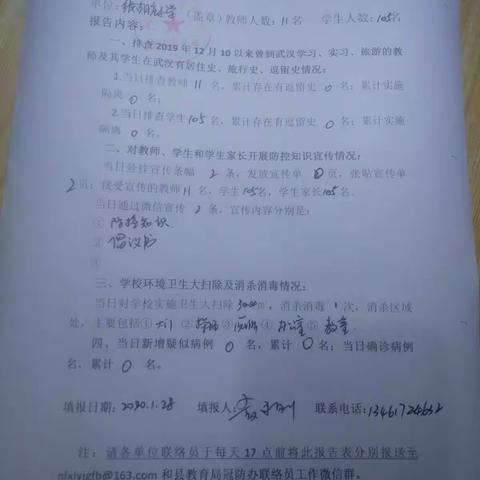 单位: 小学 (盖章) 教师人数: 11名 学生人数: 105名
报告内容:
一、排查2019年12月10以来曾到武汉学习、实习、旅游的教
师及其学生在武汉有居住史、旅行史、逗留史情况:
1.当日排查教师 11 名, 累计存在有逗留史 0 名; 累计实施
隔离 0 名;
2.当日排查学生105名, 累计存在有逗留史 0 名; 累计实施
隔离 0 名。
二、对教师、学生和学生家长开展防控知识宣传情况:
当日悬挂宣传条幅 2 条, 发放宣传单 0 页, 张贴宣传单
2页; 接受宣传的教师11名, 学生105名, 学生家长105名.
当日通过微信宣传 2 条, 宣传内容分别是:
① 防控知识
② 倡议书
③
三、学校环境卫生大扫除及消杀消毒情况:
当日对学校实施卫生大扫除3000㎡, 消杀消毒 1 次, 消杀区域
处, 主要包括① 大门 ② ③ 厕所 ④ 办公室 ⑤ 教室
四、当日新增疑似病例 0 名, 累计 0 名; 当日确诊病例
名, 累计 0 名。
填报日期: 2020.1.28 填报人: 联系电话: 13461724632
注: 请各单位联络员于每天17点前将此报告表分别报送至
nlxjyjgfb@163.com 和县教育局冠防办联络员工作微信群。